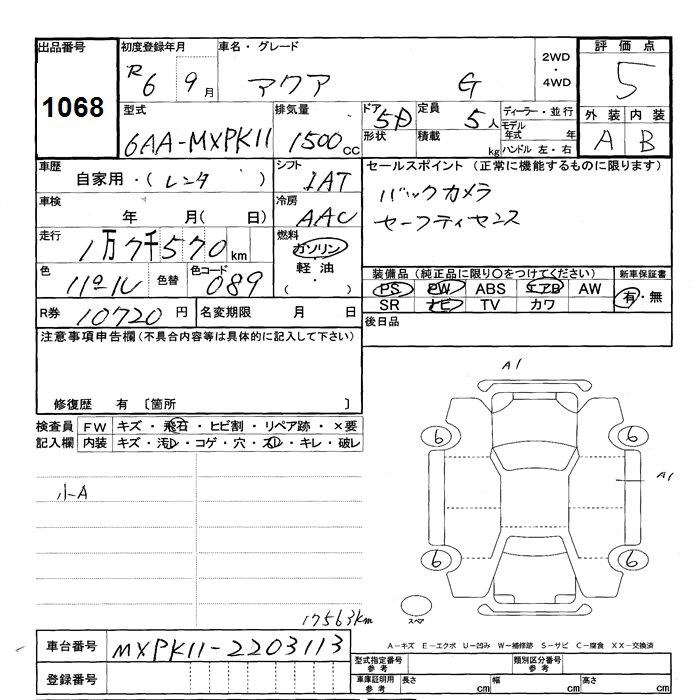 出品番号 1068
初度登録年月 R6 9月
車名・グレード アクア G
2WD・4WD
評価点 5
型式 6AA-MXPK11
排気量 1500cc
ドア 5D 形状
定員 5人
積載 kg
ディーラー・並行
モデル年式 年
ハンドル 左・右
外装 内装
A B
車歴 自家用・(レンタ)
シフト IAT
セールスポイント(正常に機能するものに限ります)
バックカメラ
セーフティセンス
車検 年 月( 日)
冷房 AAC
走行 1万7千570km
燃料 ガソリン 軽油 ( ・ )
色 パール 色替
色コード 089
装備品(純正品に限り○をつけてください)
PS PW ABS エアB AW
SR ナビ TV カワ
新車保証書 有・無
R券 10720円
名変期限 月 日
後日品
注意事項申告欄(不具合内容等は具体的に記入して下さい)
修復歴 有 〔箇所 〕
検査員記入欄
FW キズ・飛石・ヒビ割・リペア跡・×要
内装 キズ・汚レ・コゲ・穴・スレ・キレ・破レ
小A
17563km
A1
6 6
A1
6 6
スペア
A-キズ E-エクボ U-凹み W-補修跡 S-サビ C-腐食 XX-交換済
車台番号 MXPK11-2203113
登録番号
型式指定番号 参考
類別区分番号 参考
車庫証明用 参考 長さ cm 幅 cm 高さ cm